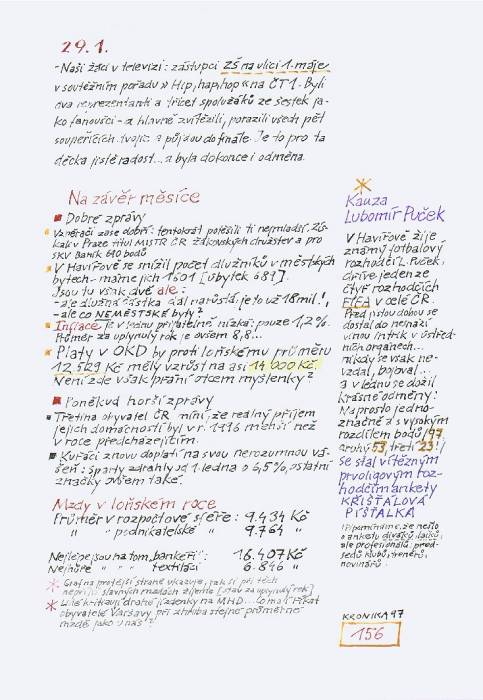 29.1.
-Naši žáci v televizi: zástupci ZŠ na ulici 1. máje
v soutěžním pořadu » Hip, hap, hop « na ČT 1. Byli
dva reprezentanti a třicet spolužáků ze šestek ja-
ko fanoušci - a hlavně zvítězili, porazili všech pět
soupeřících dvojic a půjdou do finále. Je to pro ta
děcka jistě radost... a byla dokonce i odměna.
Na závěr měsíce
Dobré zprávy
Vzpěrači zase dobří: tentokrát potěšili ti nejmladší. Zís-
kali v Praze titul MISTR ČR žákovských družstev a pro
SKV Baník 610 bodů
V Havířově se snížil počet dlužníků v městských
bytech - máme jich 1501 [úbytek 681].
Jsou tu však dvě ale:
- ale dlužná částka dál narůstá, je to už 18 mil.!,
- ale co NEMĚSTSKÉ byty?
Inflace je v lednu přijatelně nízká: pouze 1,2%.
Průměr za uplynulý rok je ovšem 8,8...
Platy v OKD by proti loňskému průměru
12.529 Kč měly vzrůst na asi 14 000 Kč.
Není zde však přání otcem myšlenky?
Poněkud horší zprávy
Třetina obyvatel ČR míní, že reálný příjem
jejich domácností byl v r. 1996 menší než
v roce předcházejícím.
Kuřáci znovu doplatí na svou nerozumnou vá-
šeň: sparty zdrahly od 1. ledna o 6,5%, ostatní
značky ovšem také.
Mzdy v loňském roce
Průměr v rozpočtové sféře: 9.434 Kč
" " podnikatelské " 9.764 "
Nejlépe jsou na tom "bankéři": 16.407 Kč
Nejhůře " " textiláci 6.846 "
Graf na protější straně ukazuje, jak si při těch
slavných mzdách žijeme [stav za uplynulý rok]
Lidé kritizují drahé jízdenky na MHD... Co mají říkat
obyvatelé Varšavy při zhruba stejné průměrné
mzdě jako u nás?
Kauza
Lubomír Puček
V Havířově žije
známý fotbalový
rozhodčí L. Puček,
dříve jeden ze
čtyř rozhodčích
FIFA v celé ČR.
Před jistou dobou se
dostal do nenází
vinou intrik v ústřed-
ních orgánech...
nikdy se však ne-
vzdal, bojoval...
a v lednu se dožil
krásné odměny:
Naprosto jedno-
značně a s vysokým
rozdílem bodů /97,
druhý 53, třetí 23!/
se stal vítězným
prvoligovým roz-
hodčím ankety
KŘIŠŤÁLOVÁ
PÍŠŤALKA
Připomínáme, že nešlo
o anketu diváků, laiků,
ale profesionálů: před-
sedů klubů, trenérů,
novinářů.
KRONIKA 97
156